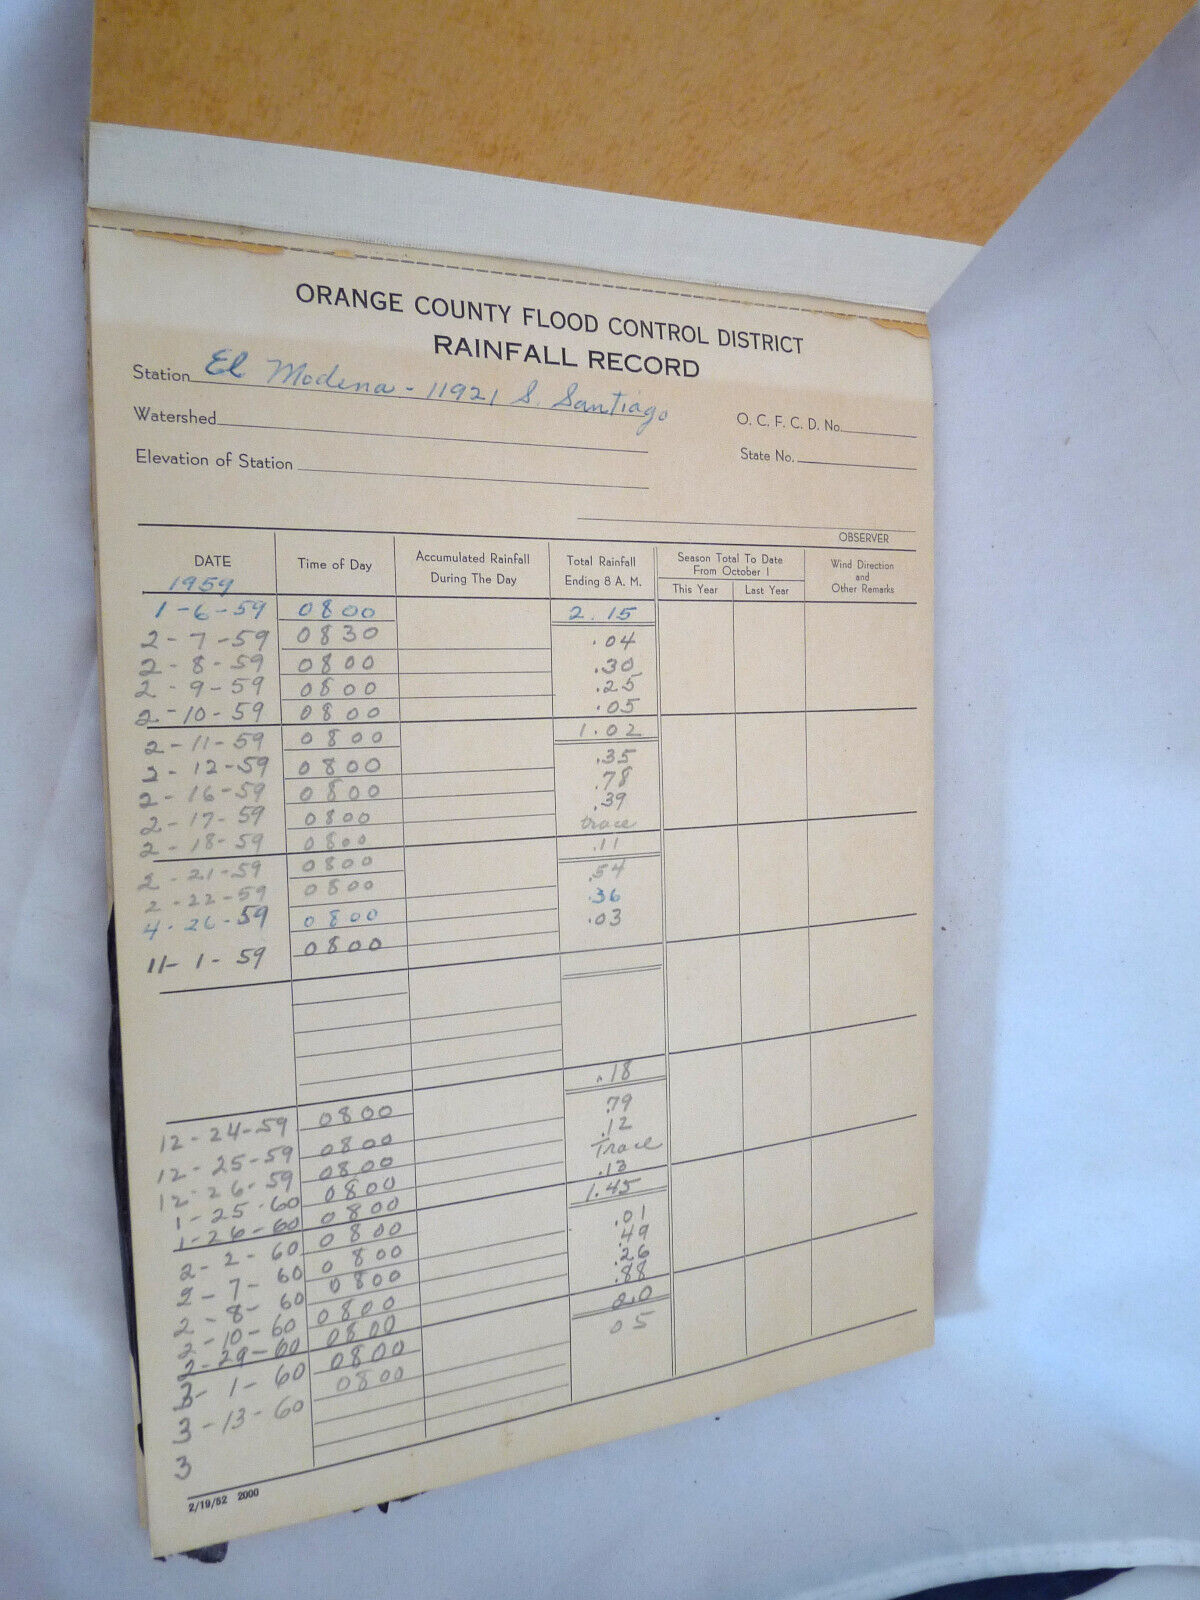 ORANGE COUNTY FLOOD CONTROL DISTRICT
RAINFALL RECORD
Station El Modena - 11921 S. Santiago
Watershed O. C. F. C. D. No.
Elevation of Station State No.
OBSERVER
DATE Time of Day Accumulated Rainfall During The Day Total Rainfall Ending 8 A. M. Season Total To Date From October 1 This Year Last Year Wind Direction and Other Remarks
1959
1-6-59 0800 2.15
2-7-59 0830 .04
2-8-59 0800 .30
2-9-59 0800 .25
2-10-59 0800 .05
2-11-59 0800 1.02
2-12-59 0800 .35
2-16-59 0800 .78
2-17-59 0800 .39
2-18-59 0800 trace
2-21-59 0800 .11
2-22-59 0800 .54
4-26-59 0800 .36
11-1-59 0800 .03
12-24-59 0800 .18
12-25-59 0800 .79
12-26-59 0800 .12
1-25-60 0800 Trace
1-26-60 0800 .13
2-2-60 0800 1.45
2-7-60 0800 .01
2-8-60 0800 .49
2-10-60 0800 .26
2-29-60 0800 .88
3-1-60 0800
3-13-60 0800 05
3
2/19/52 2000